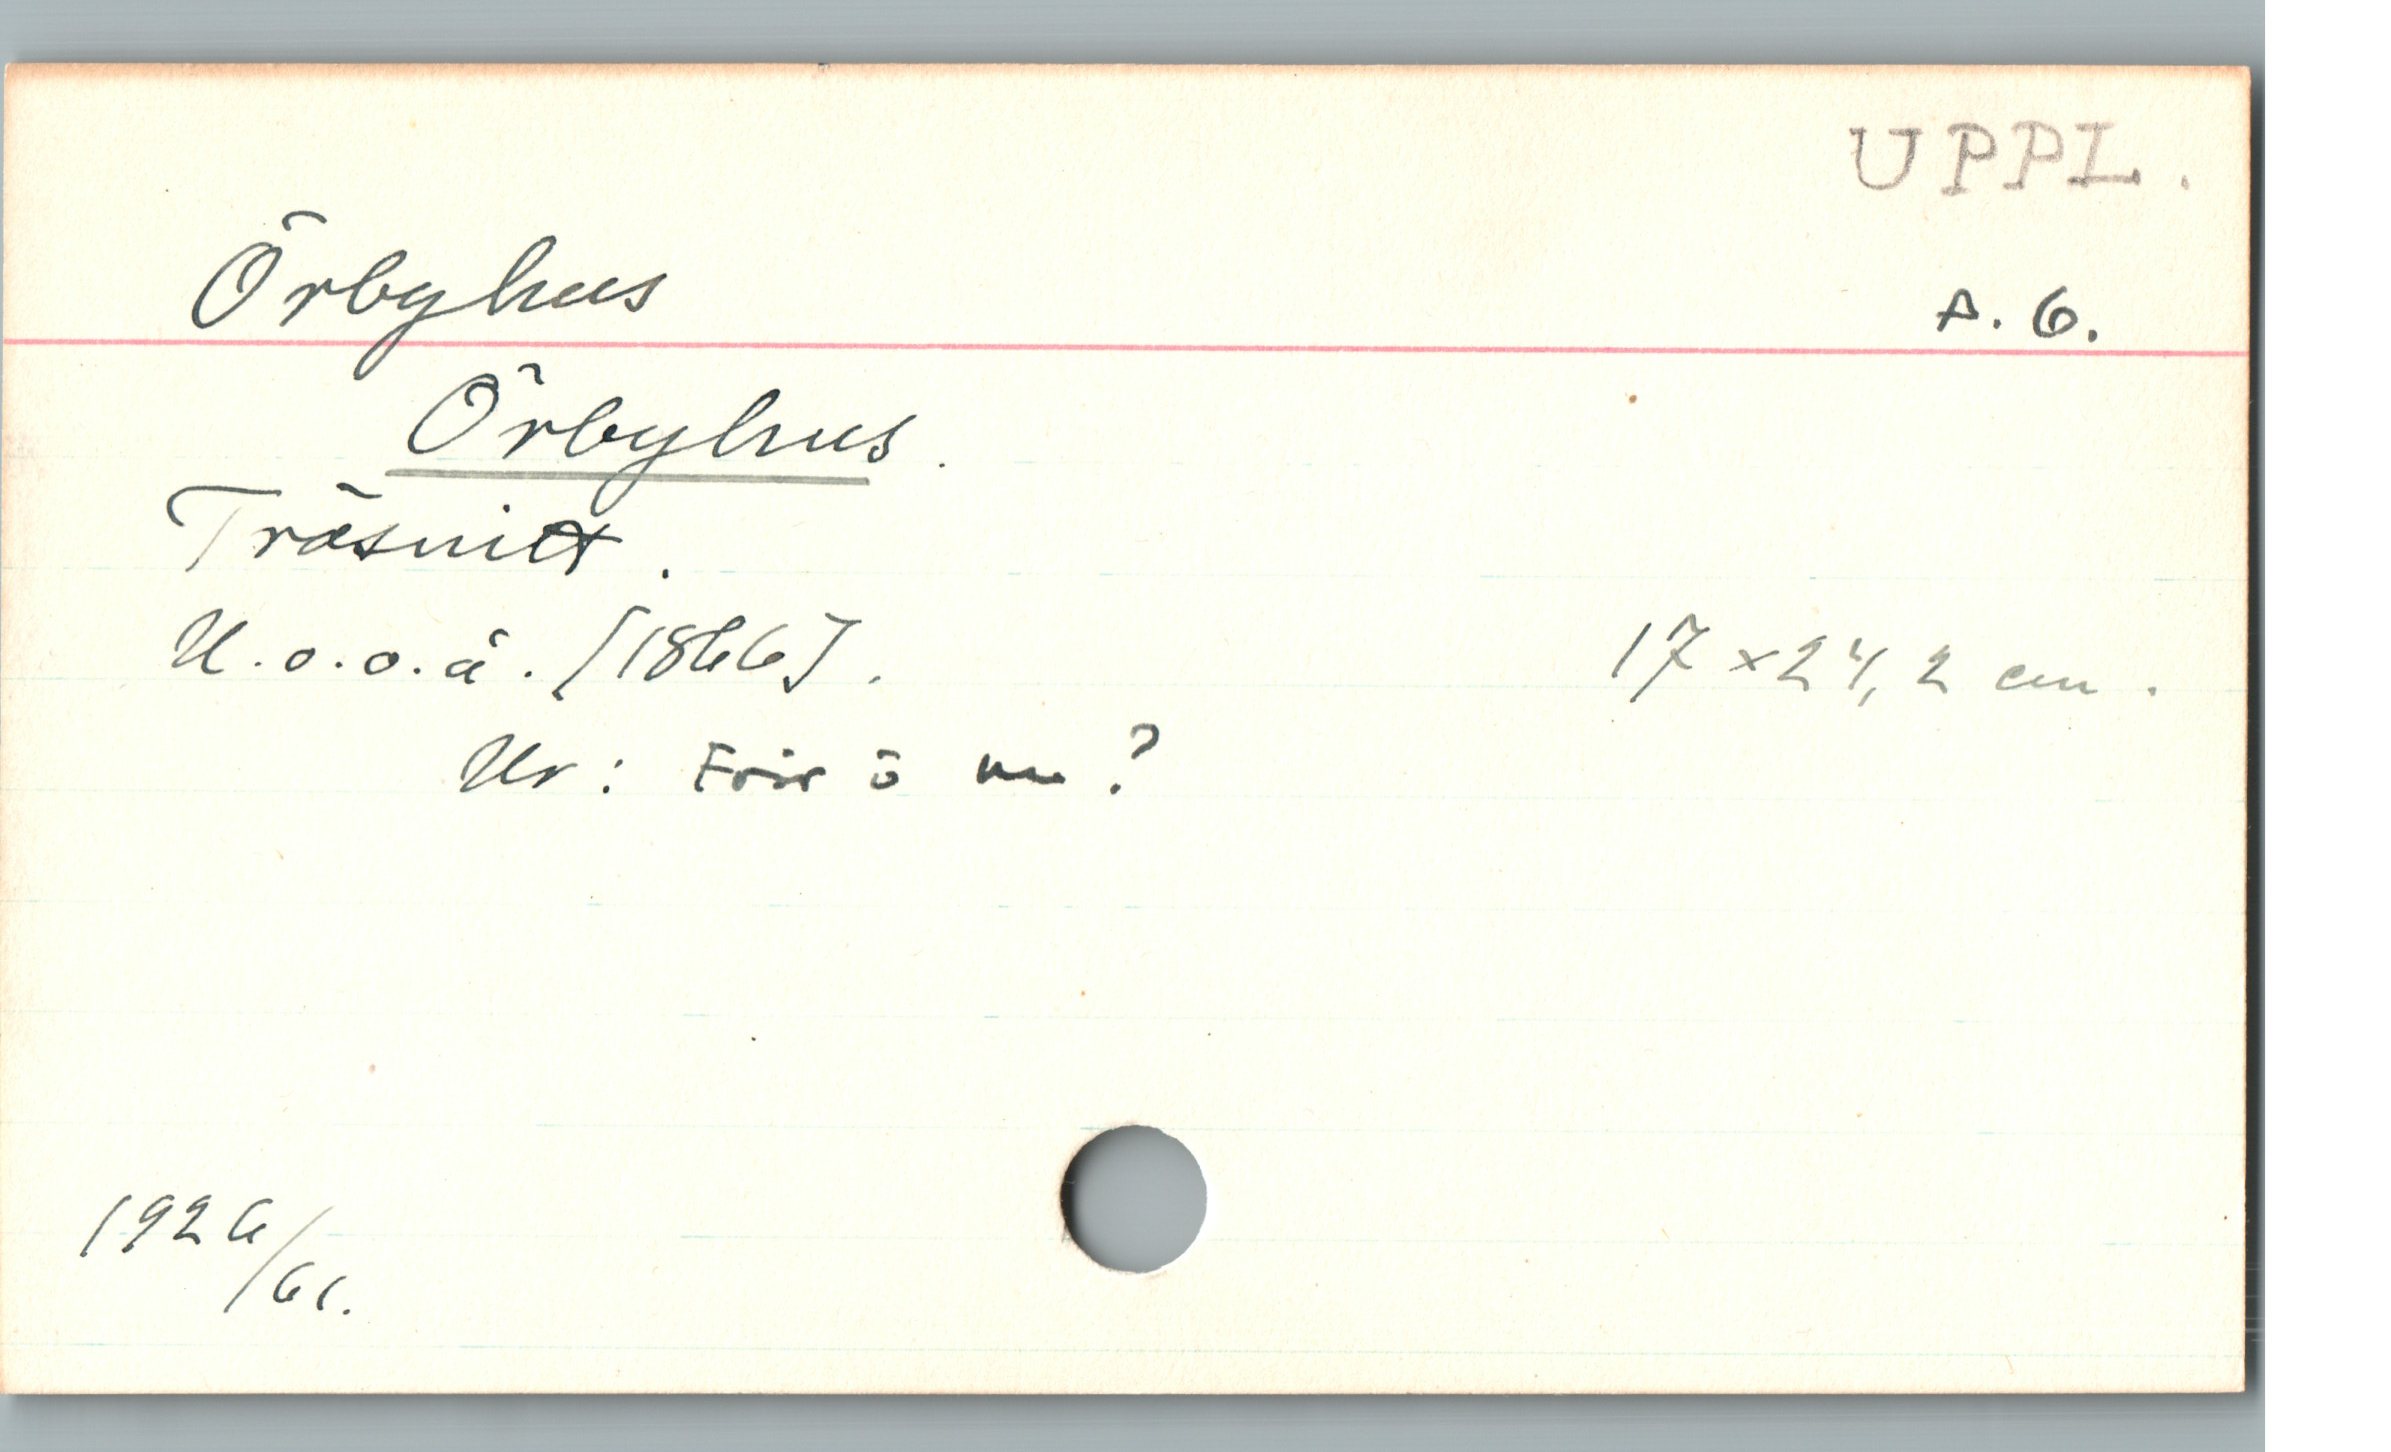 UPPL.
Örbyhus
A. 6.
Örbyhus.
Träsnitt.
U.o.o.å. [1866].
17 x 24,2 cm.
Ur: Förr o nu?
1926/61.